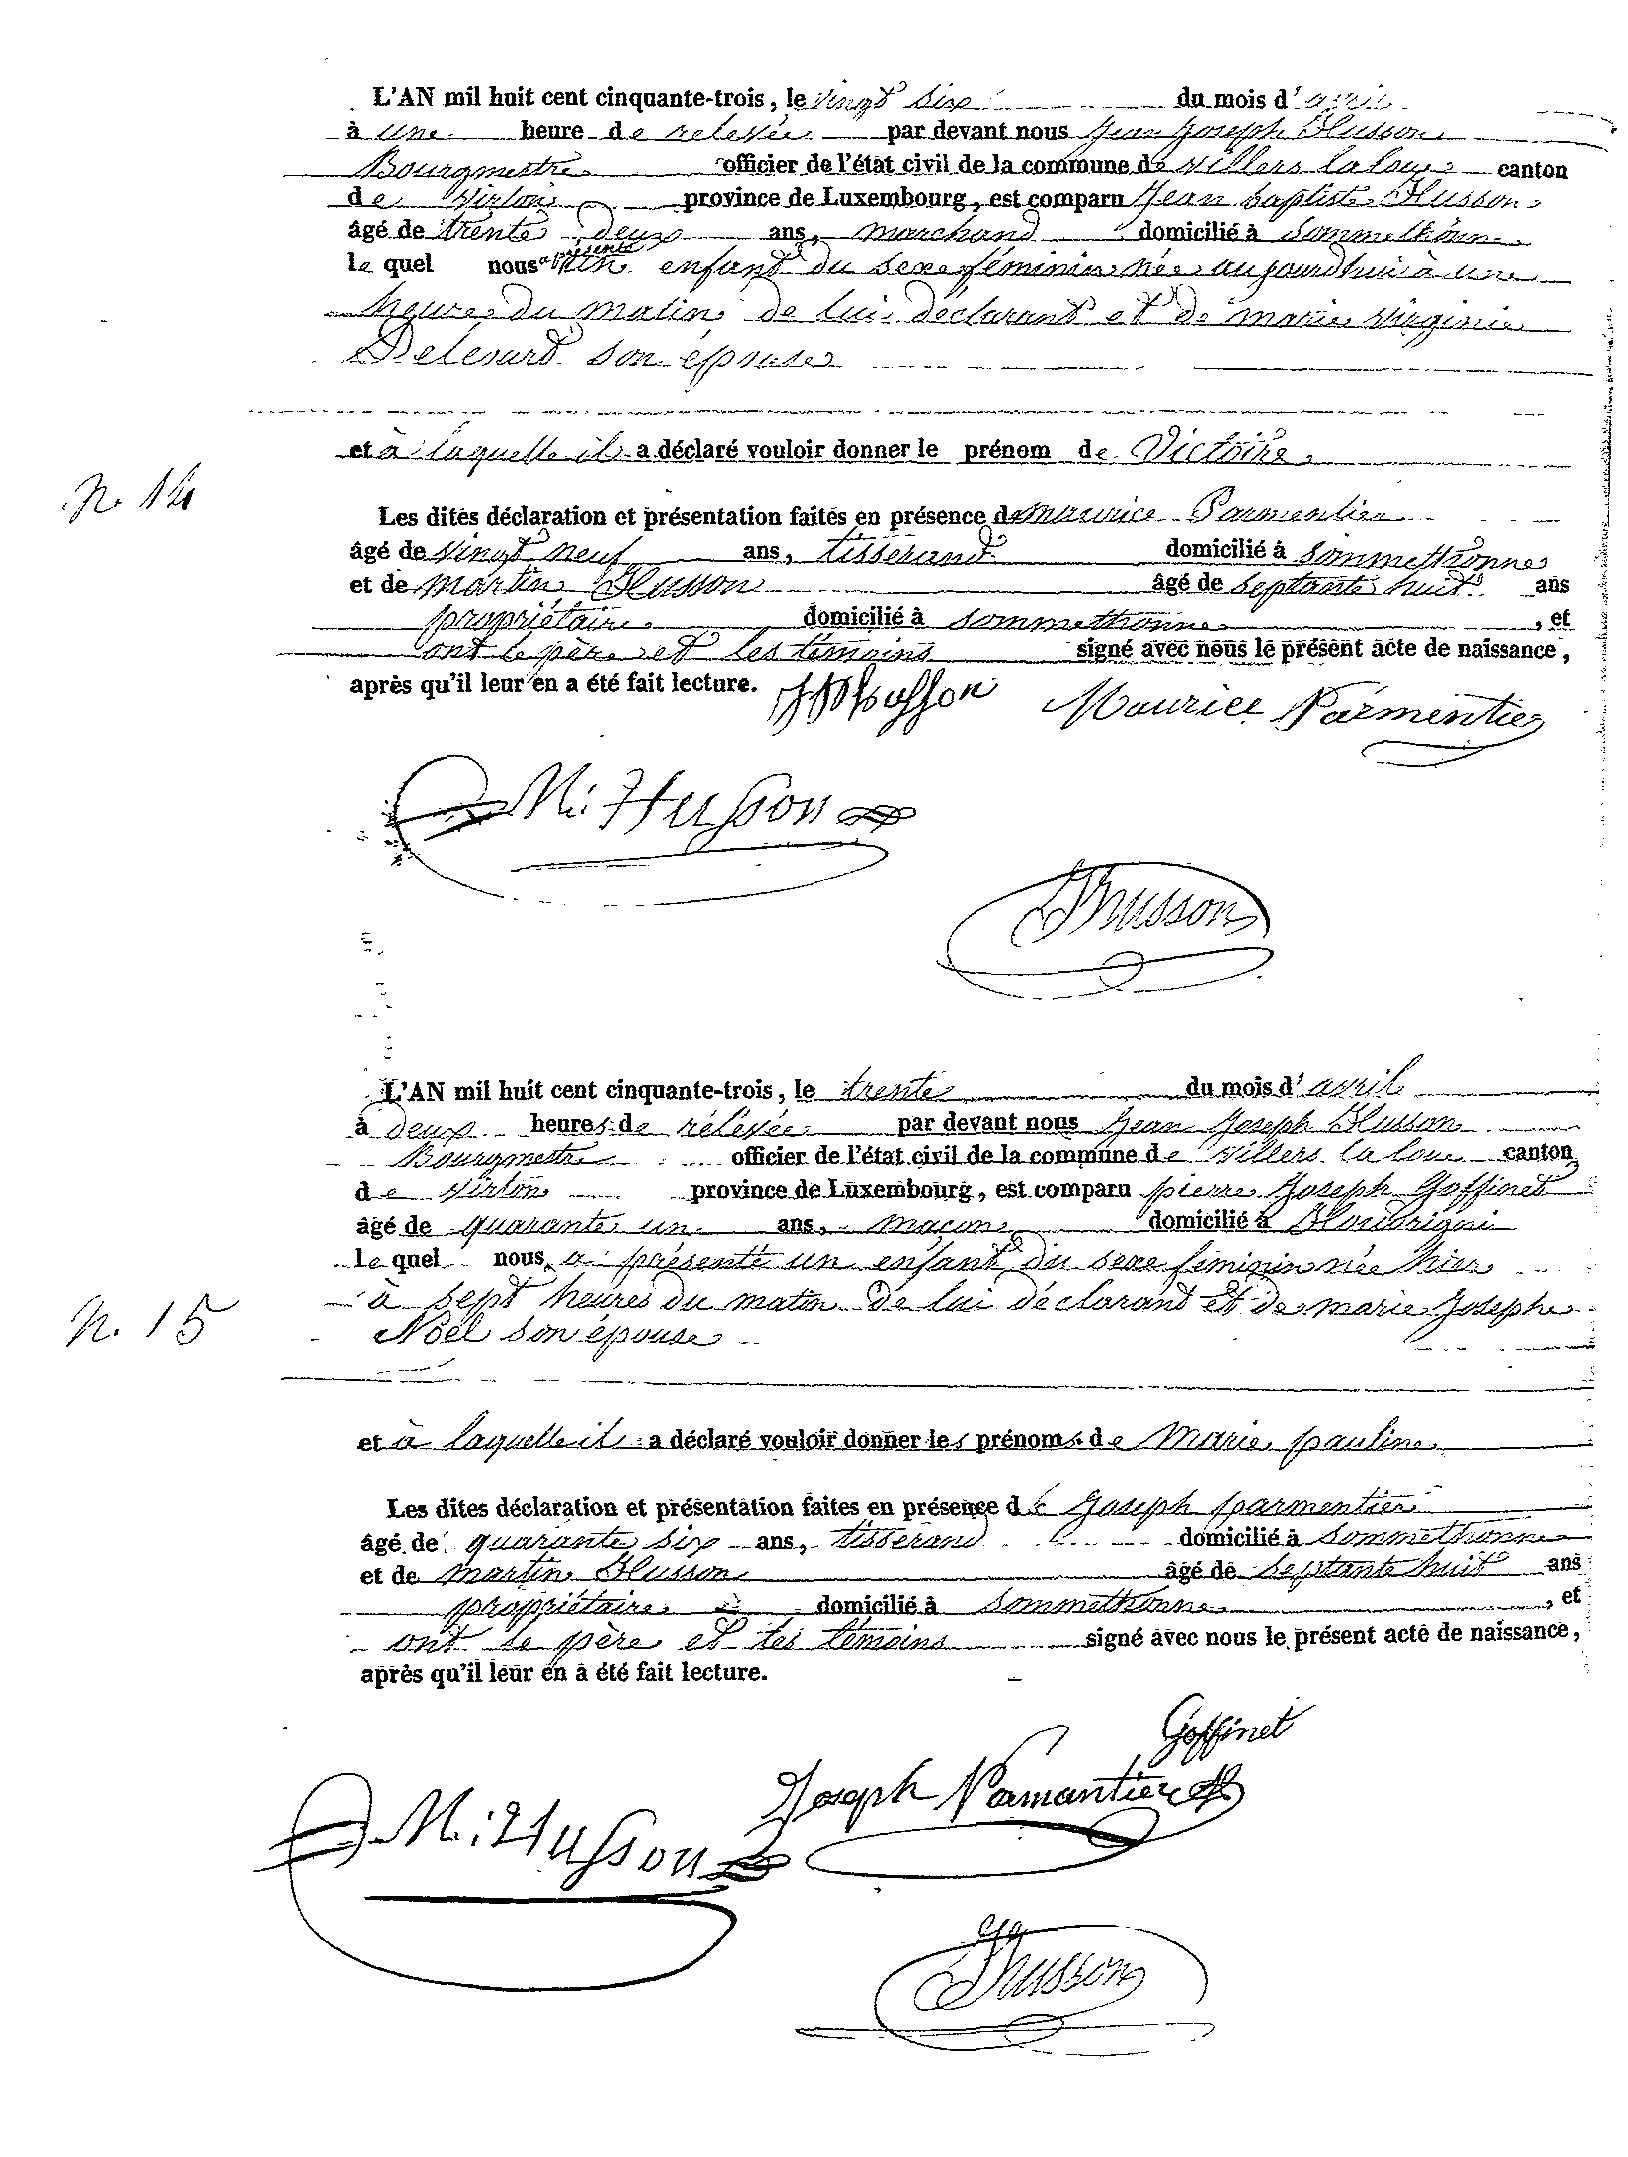 L'AN mil huit cent cinquante-trois, le vingt six du mois d'avril
à une heure de relevée par devant nous Jean Joseph Husson
Bourgmestre officier de l'état civil de la commune de villers la loue canton
de virton province de Luxembourg, est comparu Jean baptiste Husson
âgé de trente deux ans, marchand domicilié à Sommethonne
le quel nous a présenté un enfant du sexe féminin née aujourdhui à une
heure du matin de lui déclarant et de marie virginie
son épouse
et à laquelle il a déclaré vouloir donner le prénom de Victoire
N. 14
Les dites déclaration et présentation faites en présence de maurice Parmentier
âgé de vingt neuf ans, tisserand domicilié à sommethonne
et de martin Husson âgé de septante huit ans
propriétaire domicilié à sommethonne, et
ont le père et les témoins signé avec nous le présent acte de naissance,
après qu'il leur en a été fait lecture.
JBHusson Maurice Parmentier
M: Husson
JJhusson
L'AN mil huit cent cinquante-trois, le trente du mois d'avril
à deux heures de rélévée par devant nous Jean Joseph Husson
Bourgmestre officier de l'état civil de la commune de villers la loue canton
de virton province de Luxembourg, est comparu pierre Joseph Goffinet
âgé de quarante un ans, maçon domicilié à Houdrigni
le quel nous a présenté un enfant du sexe féminin née hier
à sept heures du matin de lui déclarant et de marie Josephe
N. 15
Noël son épouse
et à laquelle il a déclaré vouloir donner les prénoms de Marie pauline
Les dites déclaration et présentation faites en présence de Joseph parmentier
âgé de quarante six ans, tisserand domicilié à sommethonne
et de martin Husson âgé de septante huit ans
propriétaire domicilié à sommethonne, et
ont le père et les témoins signé avec nous le présent acte de naissance,
après qu'il leur en a été fait lecture.
Goffinet
Joseph Parmantier
M: Husson
JJhusson